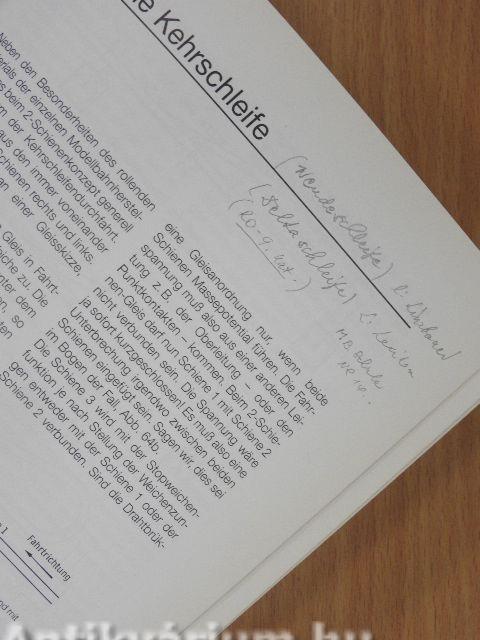 ie Kehrschleife
Neben den Besonderheiten des rollenden
erials der einzelnen Modellbahnherstel-
s beim 2-Schienenkonzept generell
m der Kehrschleifendurchfahrt.
aus den immer voneinander
chienen rechts und links.
an einer Gleisskizze,
Gleis in Fahrt-
eiche zu. Die
nter dem
n, so
ten
eine Gleisanordnung nur, wenn beide
Schienen Massepotential führen. Die Fahr-
spannung muß also aus einer anderen Lei-
tung z.B. der Oberleitung – oder den
Punktkontakten – kommen. Beim 2-Schie-
nen-Gleis darf nun Schiene 1 mit Schiene 2
nicht verbunden sein. Die Spannung wäre
ja sofort kurzgeschlossen! Es muß also eine
Unterbrechung irgendwo zwischen beiden
Schienen eingefügt sein. Sagen wir, dies sei
im Bogen der Fall. Abb. 64b.
Die Schiene 3 wird mit der Stopweichen-
funktion je nach Stellung der Weichenzun-
gen entweder mit der Schiene 1 oder der
Schiene 2 verbunden. Sind die Drahtbrük-
(Wendeschleife)
(Deltaschleife)
Fahrtrichtung
nd mit
Antikvárium.hu